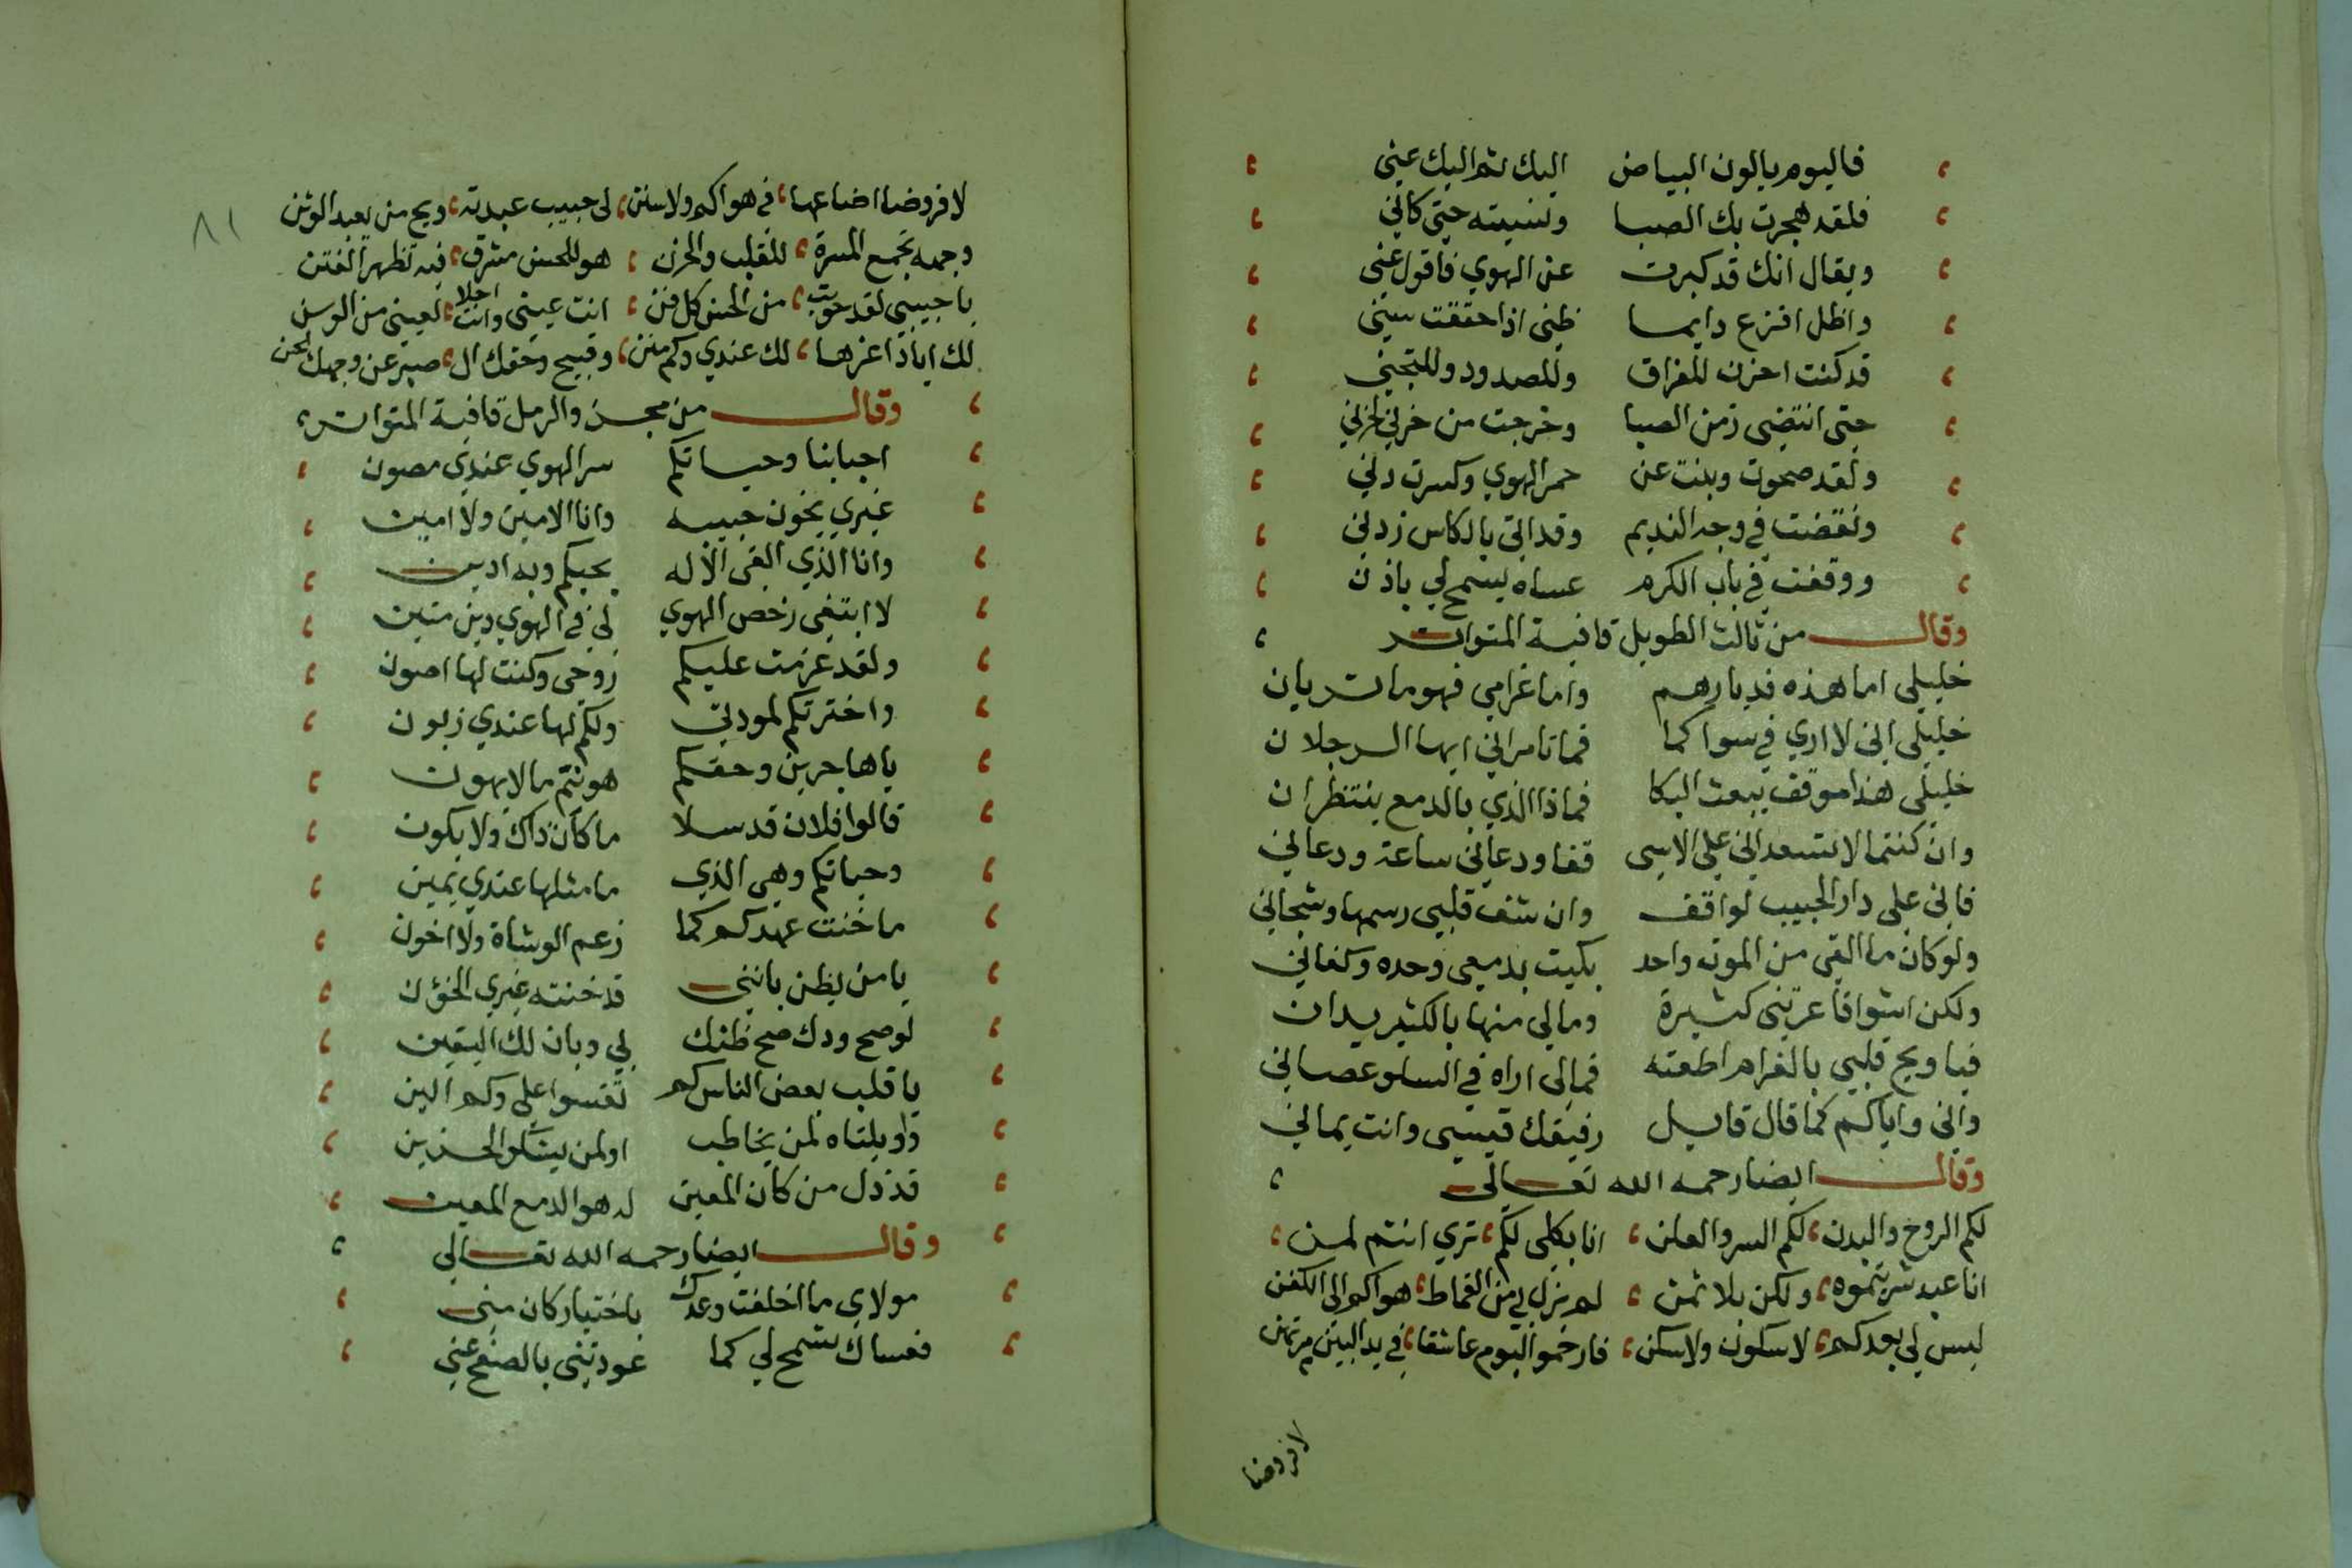 فاليوم يالون البياض اليك ثم اليك عني
فلقد هجرت بك الصبا ونسيته حتى كاني
ويقال انك قد كبرت عن الهوي فاقول عني
واظل اقرع دايما ظني اذا حققت سني
قد كنت احزن للفراق وللصدود وللتجني
حتى انتضى زمن الصبا وخرجت من خزني لخزني
ولقد صحوت وبنت عن خمر الهوي وكسرت دني
ونفضت في وجه النديم وقد اتى بالكاس ردني
ووقفت في باب الكرم عساه يسمح لي باذن
وقال من ثالث الطويل قافية المتواتر
خليلي اما هذه فديارهم واما غرامي فهو ما تريان
خليلي اني لا اري في سواكما فما تامراني ايها الرجلان
خليلي هذا موقف يبعث البكا فماذا الذي بالدمع ينتظران
وان كنتما لا تسعداني على الاسى قفا ودعاني ساعة ودعاني
فاني على دار الحبيب لواقف وان شف قلبي رسمها وشجاني
ولو كان ما القى من الموت واحد بكيت بدمعي وحده وكفاني
ولكن اشواقا عرتني كثيرة ومالي منها بالكثير يدان
فيا ويح قلبي بالغرام اطعته فمالى اراه في السلو عصاني
واني واياكم كما قال قايل رفيقك قيسي وانت يماني
وقال ايضا رحمه الله تعالى
لكم الروح والبدن لكم السر والعلن انا بكلي لكم تري انتم لمن
انا عبد شريتموه ولكن بلا ثمن لم يزل بي من القماط هواكم الى الكفن
ليس لي بعدكم لا سكون ولا سكن فارحموا اليوم عاشقا في يد البين مرتهن
لا فروضا
٨١
لا فروضا اضاعها في هواكم ولا سنن لى حبيب عبدته ويح من يعبد الوثن
وجهه تجمع المسرة للقلب والحزن هو للحسن مشرق فيه تظهر الفتن
يا حبيبي لقد حويت من الحسن كل فن انت عيني وانت احلا لعيني من الوسن
لك اياد اعزها لك عندي وكم منن وقبيح وحقك ال صبر عن وجهك الحسن
وقال من مجزو الرمل قافية المتواتر
احبابنا وحياتكم سر الهوي عندي مصون
غيري يخون حبيبه وانا الامين ولا امين
وانا الذي القى الاله بحبكم وبه ادين
لا ابتغي رخص الهوي لي في الهوي دين متين
ولقد عزمت عليكم روحي وكنت لها اصون
واخترتكم لمودتي ولكم لها عندي زبون
يا هاجرين وحقكم هونتم ما لا يهون
قالوا فلان قد سلا ما كان ذاك ولا يكون
وحياتكم وهي الذي ما مثلها عندي يمين
ما خنت عهدكم كما زعم الوشاة ولا اخون
يا من يظن بانني قد خنته غيري الخؤن
لو صح ودك صح ظنك بي وبان لك اليقين
يا قلب بعض الناس كم تقسوا على وكم الين
واويلتاه لمن يخاطب اولمن يشكو الحزين
قد ذل من كان المعين له هو الدمع المعين
وقال ايضا رحمه الله تعالي
مولاي ما اخلفت وعدك باختيار كان مني
فعساك تسمح لي كما عودتني بالصفح عني